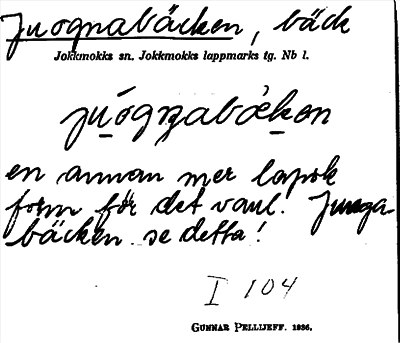 Juognabäcken, bäck
Jokkmokks sn. Jokkmokks lappmarks tg. Nb l.
juógnabäken
en annan mer lapsk
form för det vanl. Junga-
bäcken. se detta!
I 104
GUNNAR PELLIJEFF. 1936.